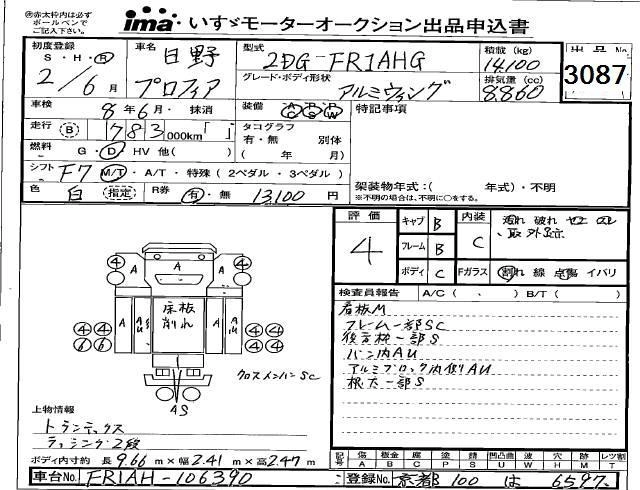 ㊟赤太枠内は必ず
ボールペンで
ご記入下さい。
ima いすゞモーターオークション出品申込書
初度登録 S・H・Ⓡ 2/6月
車名 日野 プロフィア
型式 2DG-FR1AHG
積載(kg) 14,100
出品No. 3087
グレード・ボディ形状 アルミウィング
排気量(cc) 8,860
車検 8年6月・抹消
装備 A/C P/S P/W
特記事項
走行 B 783 000km「 」
タコグラフ 有・無 別体 ( 年 月)
燃料 G・D・HV 他( )
シフト F7 M/T・A/T・特殊(2ペダル・3ペダル)
架装物年式:( 年式)・不明
※不明の場合は、不明に○をする。
色 白 (指定) R券 有・無 13,100円
評価 4
キャブ B
フレーム B
ボディ C
内装 C
汚れ 破れ
Fガラス 割れ 線 点傷 イバリ
検査員報告 A/C( 、 ) B/T( )
看板M
フレーム一部SC
後方枠一部S
バン内AU
アルミブロック内側AU
根太一部S
4 A A A 4
床板 削れ
A AU A AU
4 4 4 4
6 6 4 4
クロスメンバーSC
AS
上物情報
トランテックス
ラッシング2段
ボディ内寸約 長9.66m×幅2.41m×高2.47m
記号 傷 A 板金 B 腐 C 凹 P 錆 S 凹凸曲 U 補 W 穴 H 外 M 欠 T レツ割
車台No. FR1AH-106390
登録No. 京都 100 は 6597